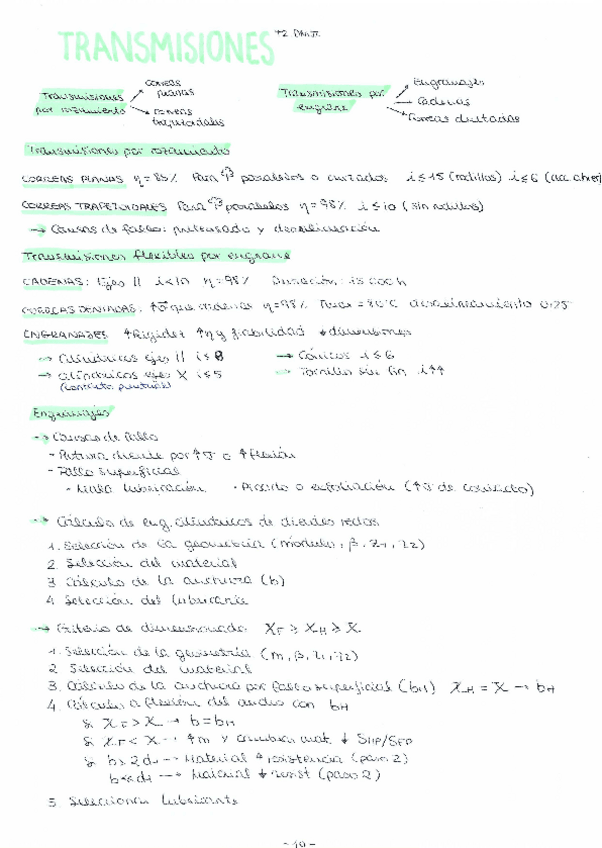 TRANSMISIONES
Transmisiones por rozamiento → correas planas
→ correas trapezoidales
Transmisiones por engrane → Engranajes
→ Cadenas
→ Correas dentadas
Transmisiones por rozamiento
CORREAS PLANAS η = 85% Para paralelos o cruzados i ≤ 15 (rodillos) i ≤ 6
CORREAS TRAPEZOIDALES Para paralelos η = 98% i ≤ 10 (sin rodillos)
→ Causas de fallo:
Transmisiones flexibles por engrane
CADENAS: Ejes // i<10 η=98% Duración: 15 000 h
η=98%
ENGRANAJES ↑Rigidez ↑η y fiabilidad ↓dimensiones
→ Cilíndricos ejes // i≤8 → Cónicos i≤6
→ Cilíndricos ejes X i≤5 → Tornillo sin fin i↑↑
(contacto puntual)
Engranajes
→ Causas de fallo
- Rotura diente por ↑σ o ↑flexión
- Fallo superficial
· Mala lubricación · Picado o exfoliación (↑σ de contacto)
→ Cálculo de eng. cilíndricos de dientes rectos
1. Selección de la geometría (módulo, β, z1, z2)
2. Selección del material
3. Cálculo de la anchura (b)
4. Selección del lubricante
→ Criterio de dimensionado XF ≥ XH ≥ X
1. Selección de la geometría (m, β, z1, z2)
2. Selección del material
3. Cálculo de la anchura por fallo superficial (bH) XH = X → bH
4. Cálculo a flexión del ancho con bH
Si XF > X → b = bH
Si XF < X → ↑m y cambiar mat. ↓ SHP/SFP
Si b > 2d1 → Material ↑ resistencia (paso 2)
→ Material ↓ resist (paso 2)
5. Seleccionar lubricante
- 19 -